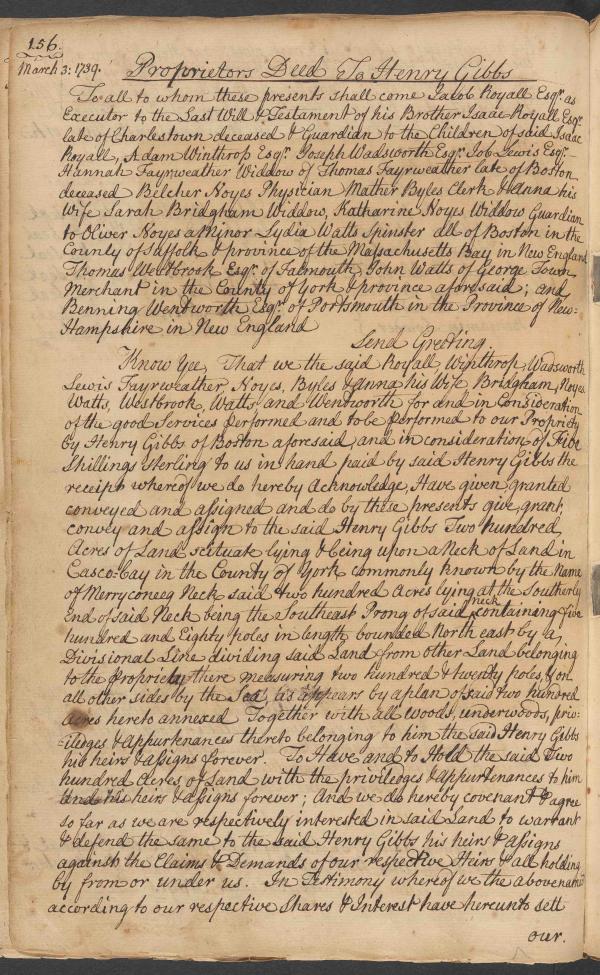 156.
March 3: 1739. Proprietors Deed To Henry Gibbs
To all to whom these presents shall come Jacob Royall Esqr. as
Executor to the Last Will & Testament of his Brother Isaac Royall Esqr.
late of Charlestown deceased & Guardian to the Children of said Isaac
Royall, Adam Winthrop Esqr. Joseph Wadsworth Esqr. Job Lewis Esqr.
Hannah Fayrweather Widdow of Thomas Fayrweather late of Boston
deceased Belcher Noyes Physician Mather Byles Clerk & Anna his
Wife Sarah Bridgham Widdow, Katharine Noyes Widdow Guardian
to Oliver Noyes a Minor Lydia Watts Spinster all of Boston in the
County of Suffolk & province of the Massachusetts Bay in New England
Thomas Westbrook Esqr. of Falmouth, John Watts of George Town
Merchant in the County of York & province aforesaid; and
Benning Wentworth Esqr. of Portsmouth in the Province of New=
Hampshire in New England
Send Greeting.
Know Yee, That we the said Royall, Winthrop, Wadsworth
Lewis Fayrweather Noyes, Byles & Anna his Wife, Bridgham, Noyes
Watts, Westbrook, Watts, and Wentworth for and in Consideration
of the good Services performed and to be performed to our Propriety
by Henry Gibbs of Boston aforesaid, and in consideration of Five
Shillings Sterling to us in hand paid by said Henry Gibbs the
receipt whereof we do hereby acknowledge, Have given, granted
conveyed and assigned and do by these presents give, grant,
convey and assign to the said Henry Gibbs Two hundred
Acres of Land scituate lying & being upon a Neck of Land in
Casco-bay in the County of York commonly known by the Name
of Merryconeeg Neck said two hundred Acres lying at the Southerly
End of said Neck being the Southeast Prong of said neck containing five
hundred and Eighty poles in length, bounded North east by a
Divisional Line dividing said Land from other Land belonging
to the Propriety there measuring two hundred & twenty poles, & on
all other sides by the Sea, as appears by a plan of said two hundred
acres hereto annexed Together with all woods, underwoods, priv=
iledges & appurtenances thereto belonging to him the said Henry Gibbs
his heirs & assigns forever. To Have and to Hold the said Two
hundred Acres of Land with the priviledges & appurtenances to him
and his heirs & assigns forever; And we do hereby covenant & agree
so far as we are respectively interested in said Land to warrant
& defend the same to the said Henry Gibbs his heirs & assigns
against the Claims & Demands of our respective Heirs & all holding
by from or under us. In Testimony whereof we the abovenamed
according to our respective Shares & Interest have hereunto sett
our.